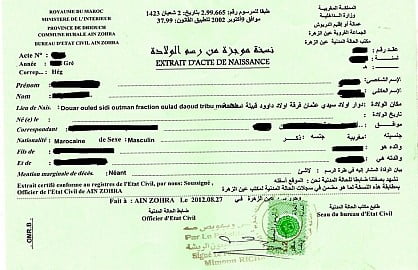 ROYAUME DU MAROC
MINISTERE DE L'INTERIEUR
PROVINCE DE DRIOUCH
COMMUNE RURALE AIN ZOHRA
BUREAU D'ETAT CIVIL AIN ZOHRA
طبقا للمرسوم رقم 2.99.665 بتاريخ: 2 شعبان 1423
موافق (9 أكتوبر 2002 لتطبيق القانون 37.99
المملكة المغربية
وزارة الداخلية
الجماعة القروية عين زهرة
مكتب الحالة المدنية عين الزهرة
نسخة موجزة من رسم الولادة
EXTRAIT D'ACTE DE NAISSANCE
Acte N°
عقد رقم
Année
Gré
سنة
Corresp..
Hég
Prénom
الإسم الشخصي
Nom
الإسم العائلي
Lieu de Nais. : Douar ouled sidi outman fraction oulad daoud tribu دوار اولاد سيدي عثمان فرقة اولاد داوود قبيلة
مكان الولادة
Né (e) le
تاريخ الولادة
Correspondant
موافق
Nationalité : Marocaine de Sexe : Masculin
جنسه : ذكر
مغربية
جنسيته
Fils de
والده هو
Et de
والدته هي
Mention marginale de décès. : Néant
بيان الوفاة المشار إليه في طرة الرسم : لاشئ
Extrait certifié conforme au registres de l'Etat Civil, par nous: Soussigné,
Officier de l'Etat Civil de AIN ZOHRA
نشهد بمطابقة هذه النسخة لما هو مضمن في سجلات الحالة المدنية لمكتب عين الزهرة
Fait à : AIN ZOHRA Le 2012.08.27
وحرر ب: عين الزهرة في
Officier d'Etat Civil
ضابط الحالة المدنية
طابع مكتب الحالة المدنية
Seau du bureau d'Etat Civil
ONR.B